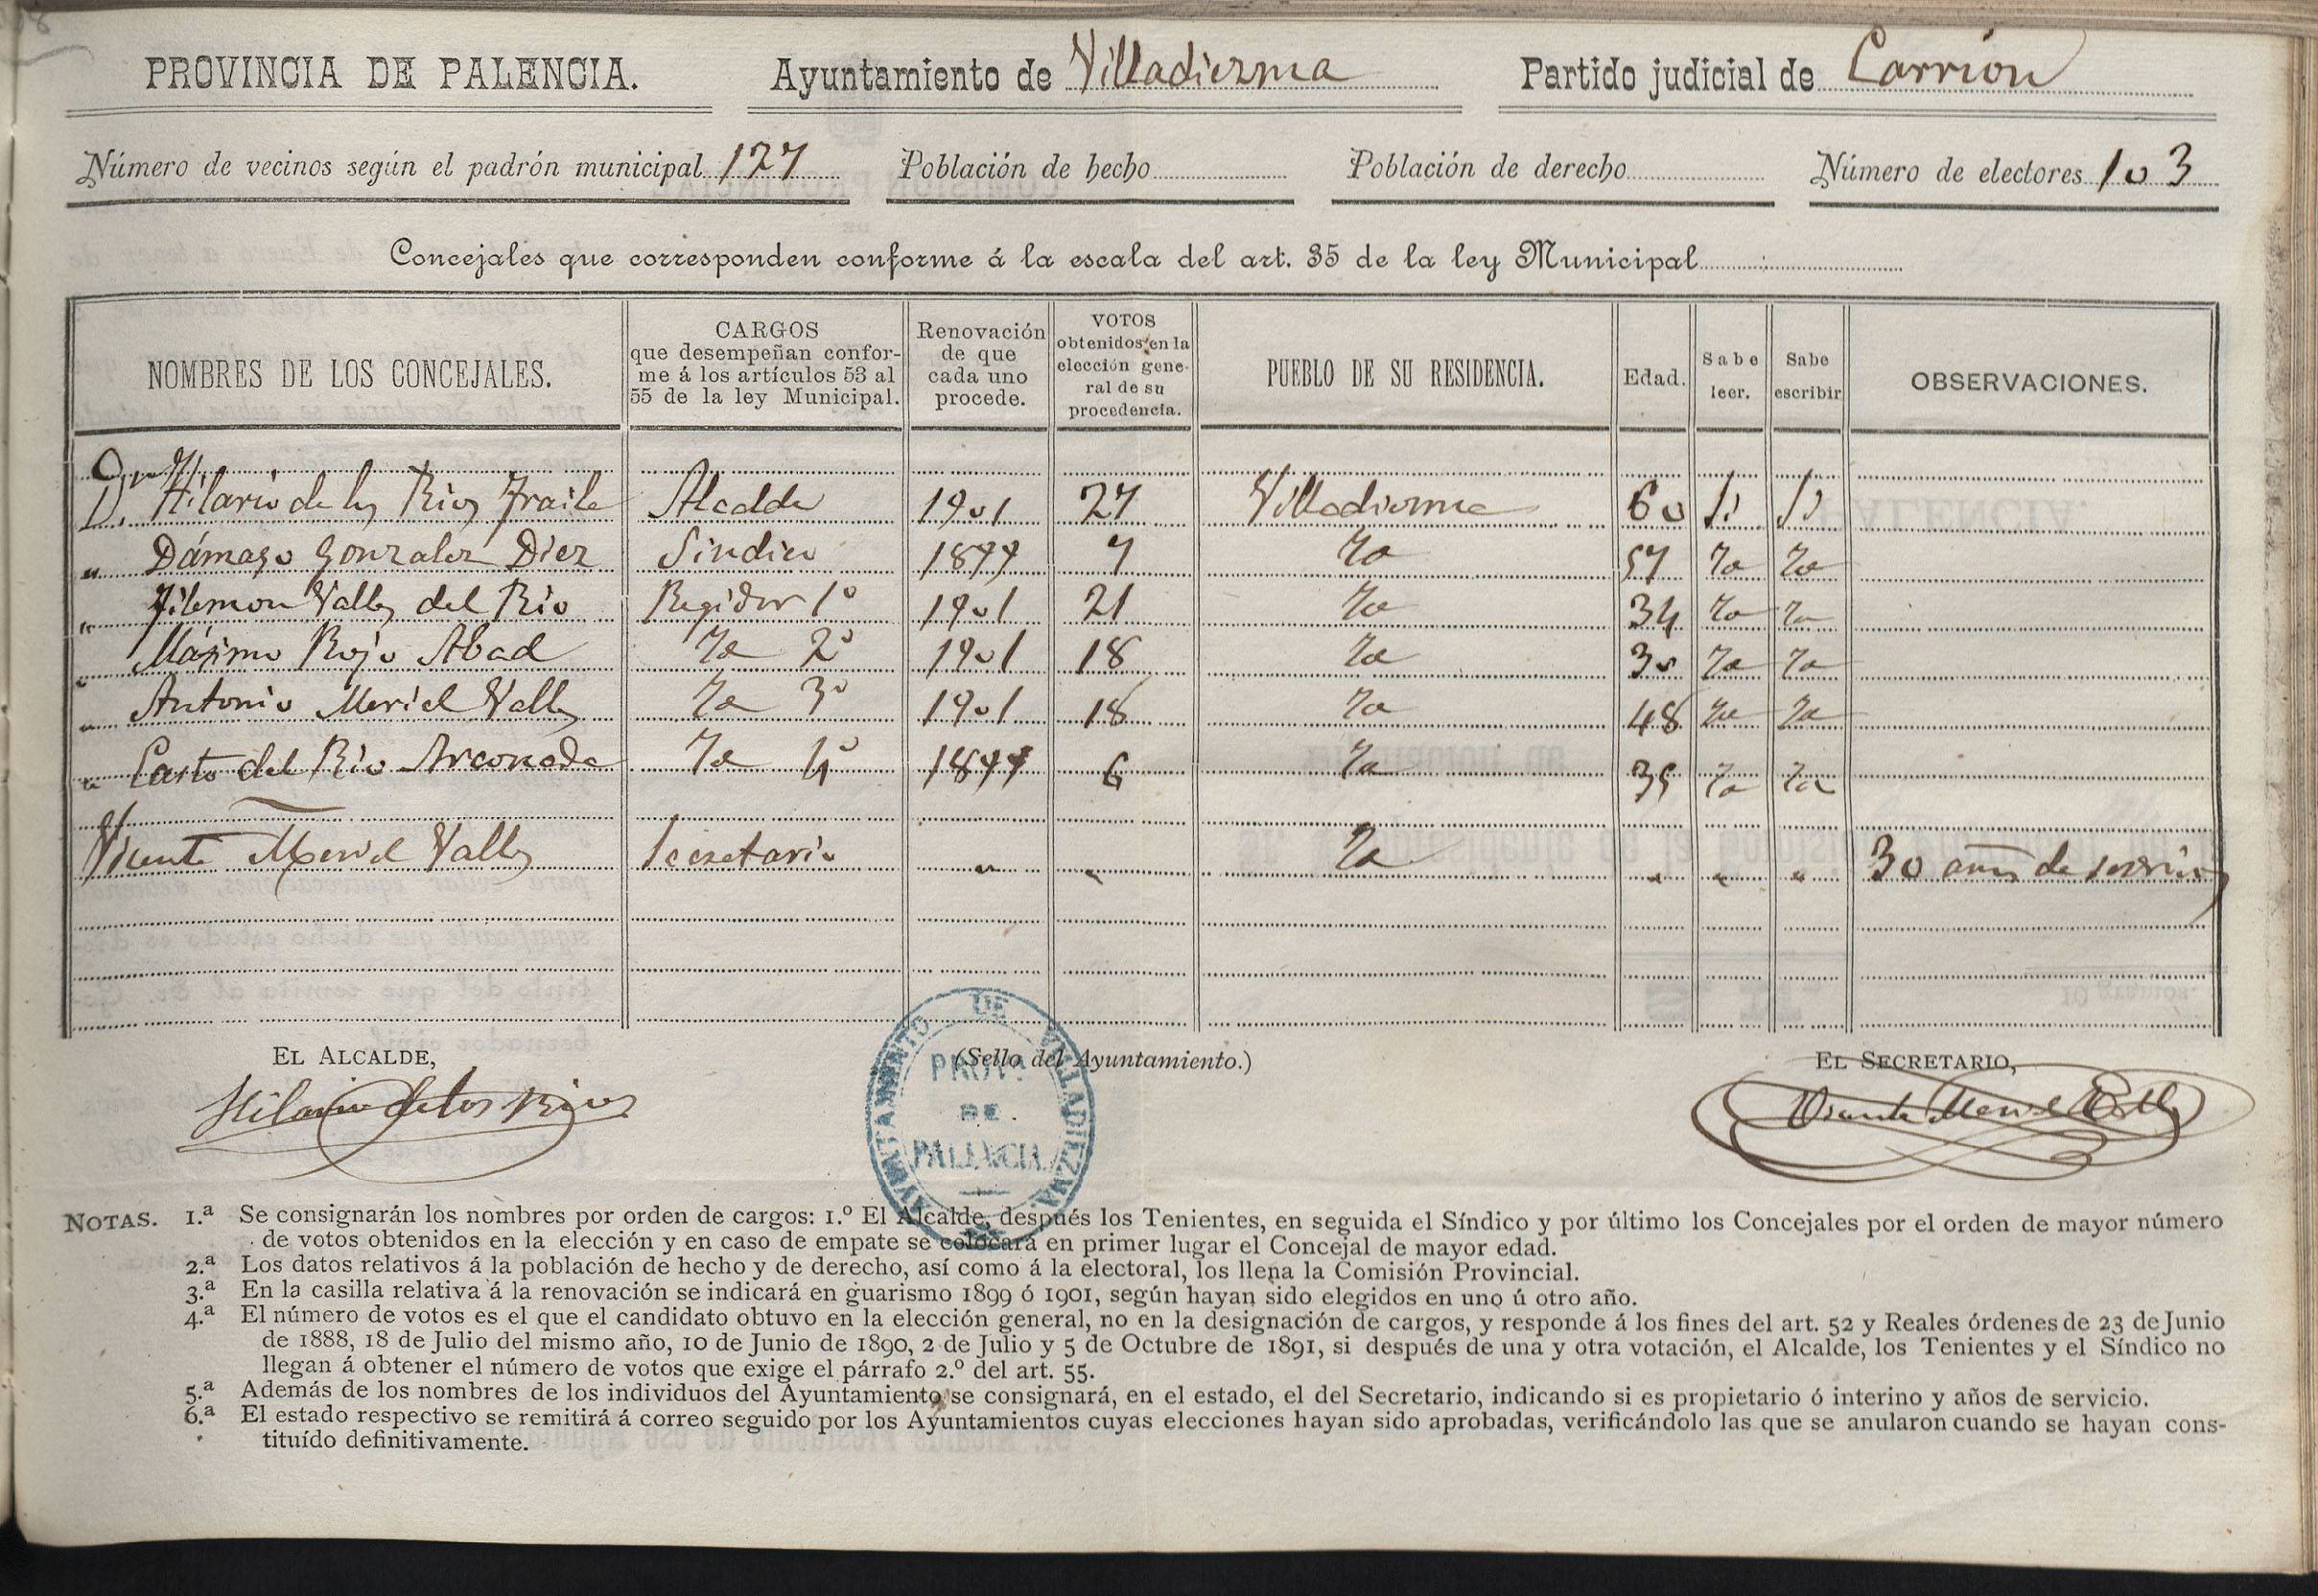 PROVINCIA DE PALENCIA. Ayuntamiento de Villadiezma Partido judicial de Carrión
Número de vecinos según el padrón municipal 127 Población de hecho Población de derecho Número de electores 103
Concejales que corresponden conforme á la escala del art. 35 de la ley Municipal
NOMBRES DE LOS CONCEJALES. CARGOS que desempeñan conforme á los artículos 53 al 55 de la ley Municipal. Renovación de que cada uno procede. VOTOS obtenidos en la elección general de su procedencia. PUEBLO DE SU RESIDENCIA. Edad. Sabe leer. Sabe escribir OBSERVACIONES.
D. Hilario de los Rios Fraile Alcalde 1901 27 Villadiezma 60 Si Si
" Dámaso Gonzalez Diez Sindico 1899 7 Id 57 Id Id
" Filemon Valles del Rio Regidor 1º 1901 21 Id 34 Id Id
" Máximo Rojo Abad Id 2º 1901 18 Id 30 Id Id
" Antonio Meriel Valles Id 3º 1901 18 Id 48 Id Id
" Casto del Rio Arconada Id 4º 1899 6 Id 35 Id Id
Vicente Meriel Valles Secretario " " Id " " " 30 años de servicios
EL ALCALDE, (Sello del Ayuntamiento.) EL SECRETARIO,
Hilario de los Rios
AYUNTAMIENTO DE VILLADIEZMA
PROVA
DE
PALENCIA
Vicente Meriel Valles
NOTAS. 1.ª Se consignarán los nombres por orden de cargos: 1.º El Alcalde, después los Tenientes, en seguida el Síndico y por último los Concejales por el orden de mayor número
de votos obtenidos en la elección y en caso de empate se colocará en primer lugar el Concejal de mayor edad.
2.ª Los datos relativos á la población de hecho y de derecho, así como á la electoral, los llena la Comisión Provincial.
3.ª En la casilla relativa á la renovación se indicará en guarismo 1899 ó 1901, según hayan sido elegidos en uno ú otro año.
4.ª El número de votos es el que el candidato obtuvo en la elección general, no en la designación de cargos, y responde á los fines del art. 52 y Reales órdenes de 23 de Junio
de 1888, 18 de Julio del mismo año, 10 de Junio de 1890, 2 de Julio y 5 de Octubre de 1891, si después de una y otra votación, el Alcalde, los Tenientes y el Síndico no
llegan á obtener el número de votos que exige el párrafo 2.º del art. 55.
5.ª Además de los nombres de los individuos del Ayuntamiento se consignará, en el estado, el del Secretario, indicando si es propietario ó interino y años de servicio.
6.ª El estado respectivo se remitirá á correo seguido por los Ayuntamientos cuyas elecciones hayan sido aprobadas, verificándolo las que se anularon cuando se hayan cons-
tituído definitivamente.